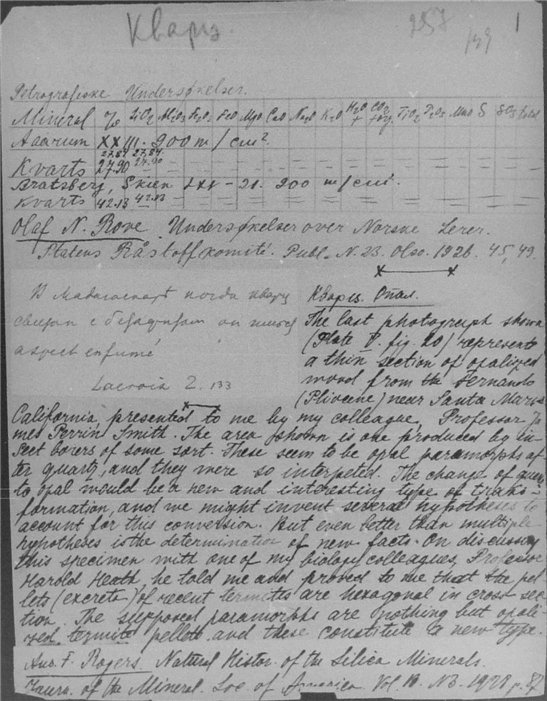 Кварц.
257
1
Petrografiske Undersøkelser.
Mineral % SiO2 Al2O3 Fe2O3 FeO MgO CaO Na2O K2O H2O+ CO2 TiO2 P2O5 MnO S SO3 Total
XXIII. 200 m/cm2.
27.84 27.84
Kvarts 27.90 27.90
Bratsberg, Skien 200 m/cm2.
Kvarts 42.13 42.13
Olaf N. Rove. Undersøkelser over Norske Lerer.
Statens Råstoffkomité. Publ. N. 23. Oslo. 1926. 45, 49.
В Мадагаскаре кварц
связан с
aspect enfumé
Lacroix 2. 133
Кварц. Опал.
The last photograph shown
(Plate V. fig. 20) represents
a thin section of opalized
wood from the Fernando
(Pliocene) near Santa Maria
California, presented to me by my colleague, Professor Ja-
mes Perrin Smith. The area shown is one produced by in-
sect borers of some sort. These seem to be opal paramorphs af-
ter quartz, and they were so interpreted. The change of quartz
to opal would be a new and interesting type of trans-
formation, and we might invent several hypotheses to
account for this conversion. But even better than multiple
hypotheses is the determination of new facts. On discussing
this specimen with one of my biology colleagues, Professor
Harold Heath, he told me and proved to me that the pel-
lets (excreta) of recent termites are hexagonal in cross sec-
tion. The supposed paramorphs are nothing but opali-
zed termite pellets and these constitute a new type.
Aus. F. Rogers. Natural Histor. of the Silica Minerals.
Journ. of the Mineral. Soc. of America. Vol. 13. N3. 1928. p. 87